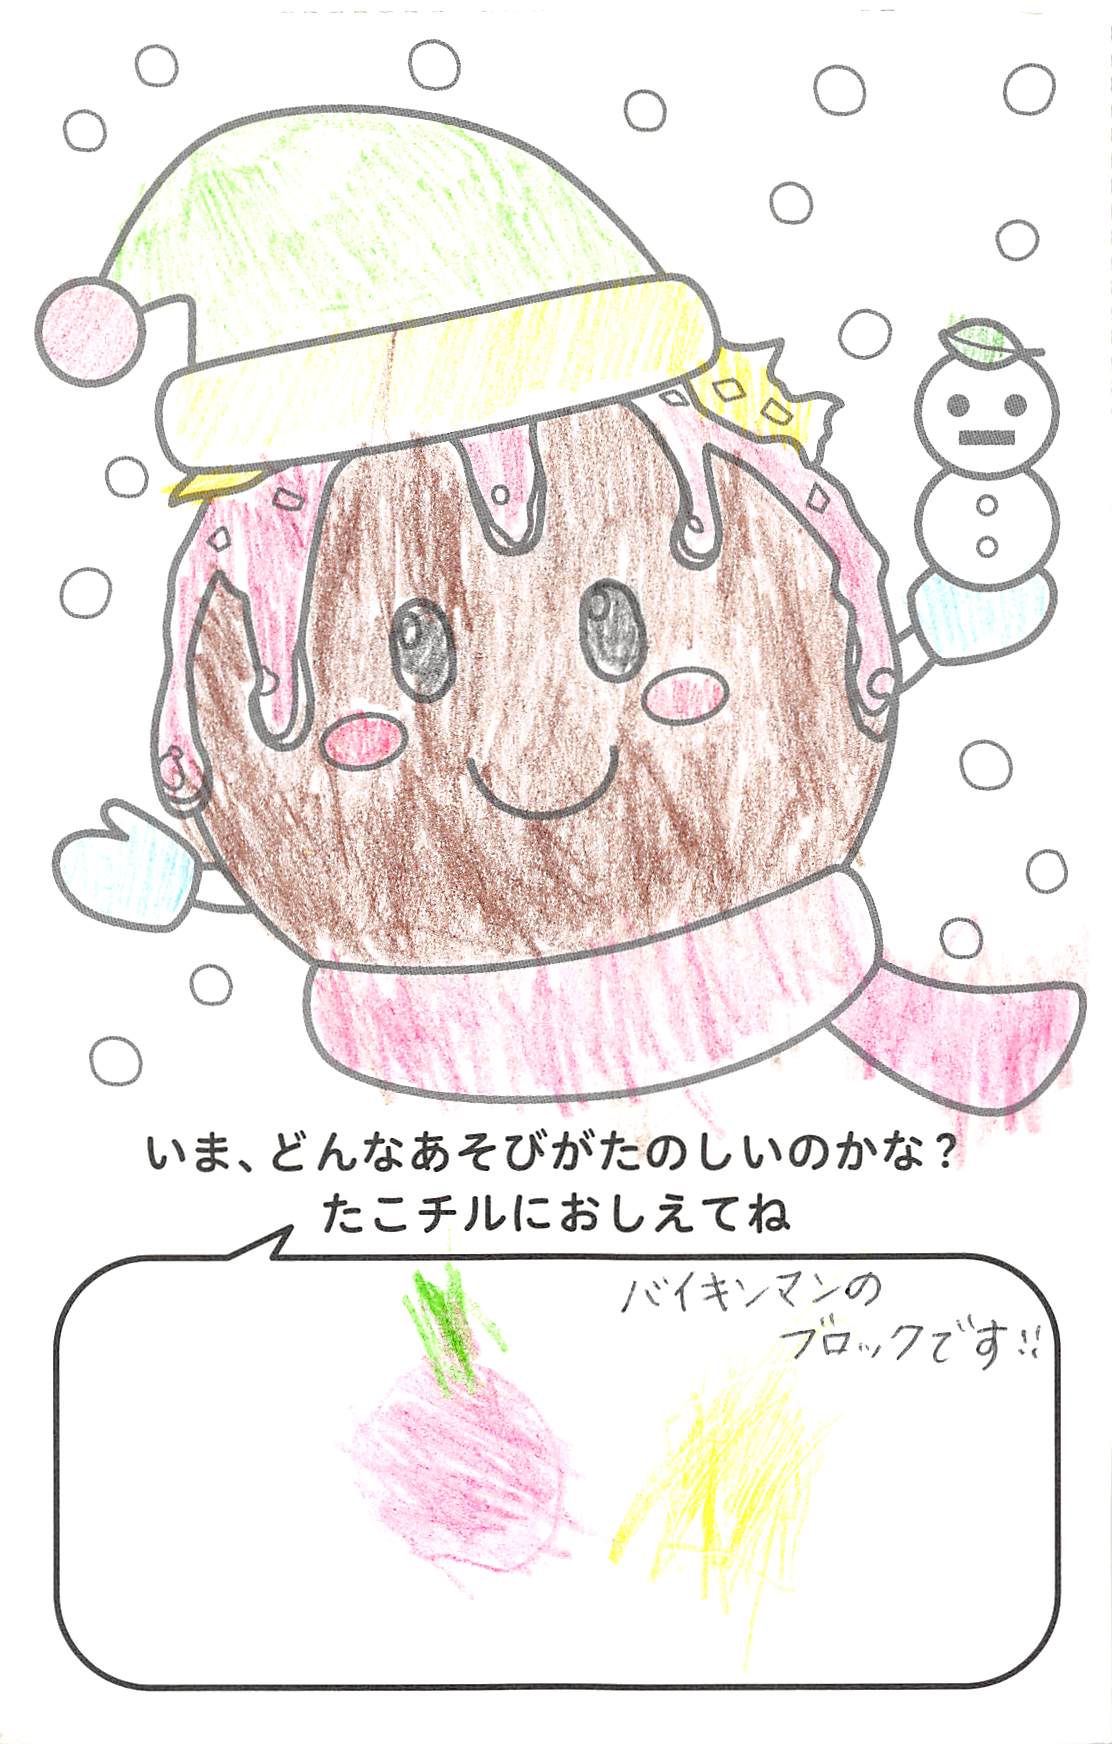 いま、どんなあそびがたのしいのかな?
たこチルにおしえてね
バイキンマンの
ブロックです!!